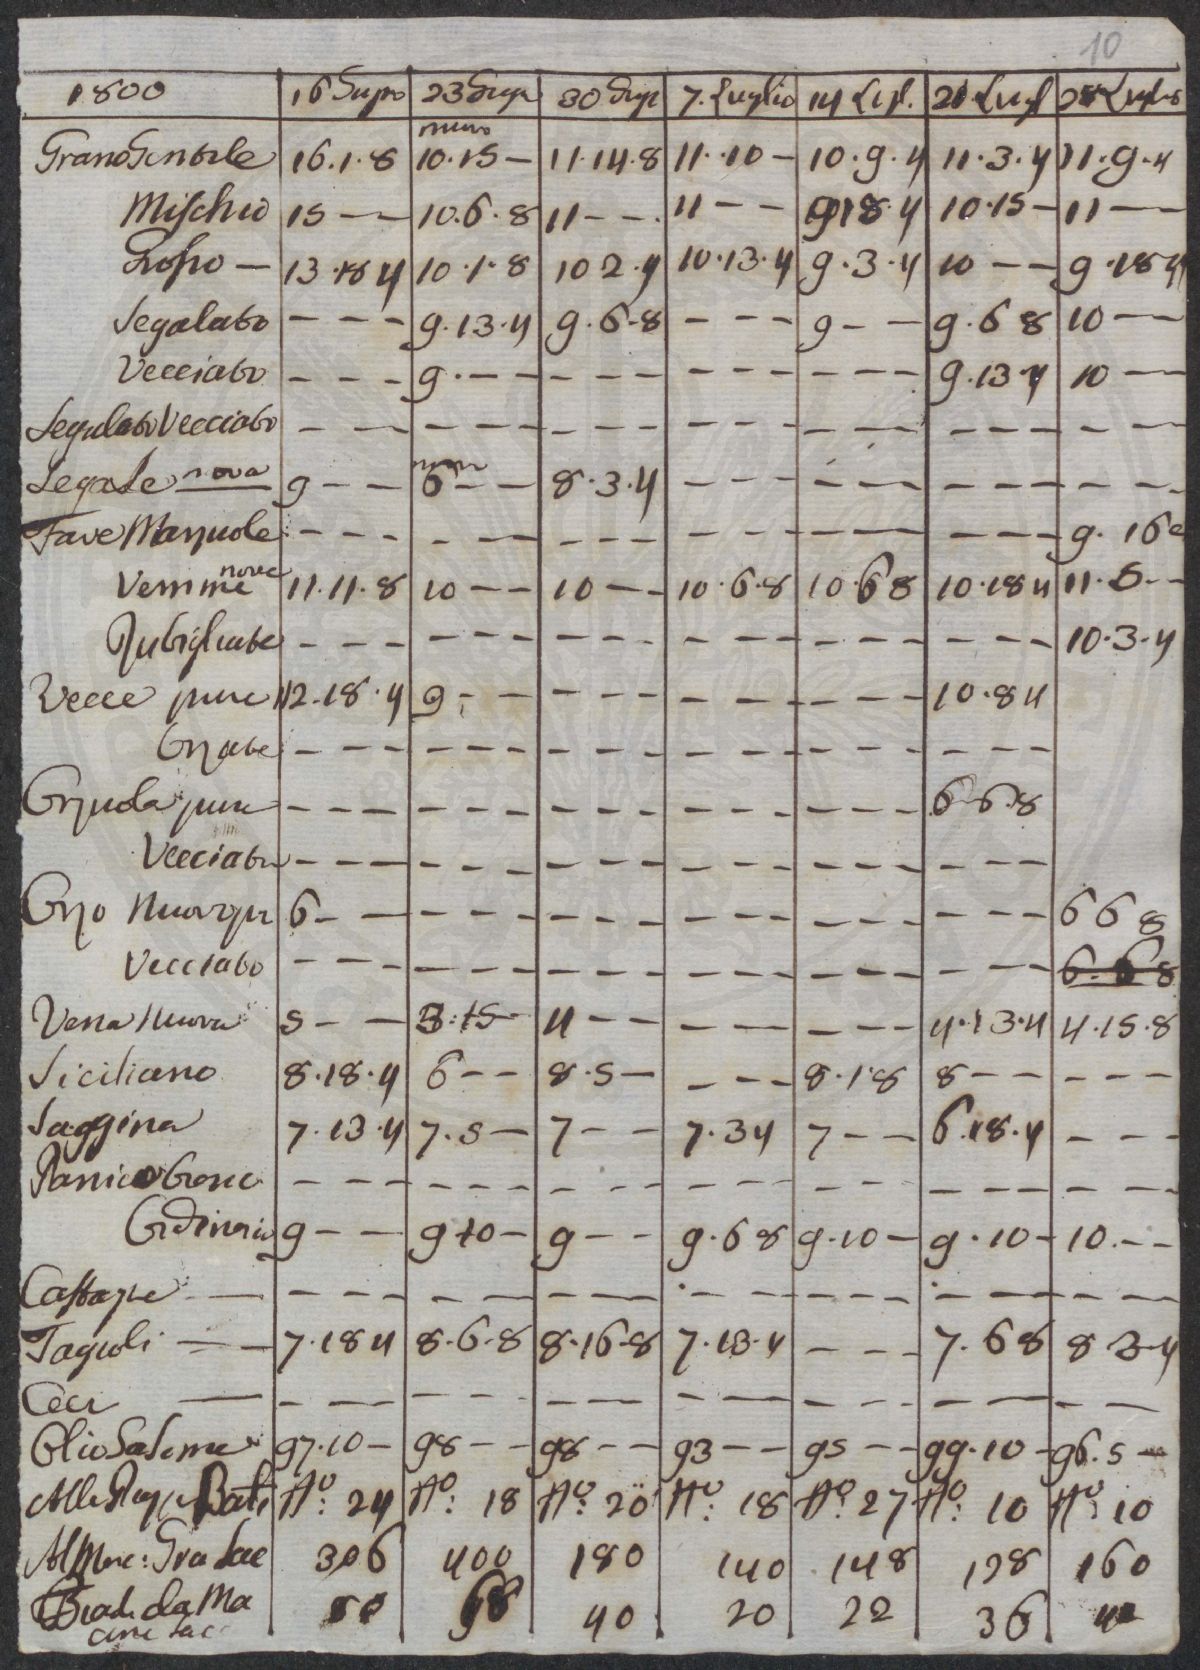 10
1800 16 Giug.o 23 Giug. 30 Giug. 7. Luglio 14 Lugl. 21 Lugl 28 Luglio
nuovo
Grano Gentile 16.1.8 10.15— 11.14.8 11.10— 10.9.4 11.3.4 11.9.4
Mischio 15—— 10.6.8 11—— 11—— 9 18.4 10.15— 11——
Grosso — 13.18 4 10.1.8 10 2.4 10.13.4 9.3.4 10—— 9.18 4
Segalato ——— 9.13.4 9.6.8 ——— 9—— 9.6 8 10——
Vecciato ——— 9.—— ——— ——— ——— 9.13 4 10——
Segalato Vecciato ——— ——— ——— ——— ——— ——— ———
Segale nova 9—— 6—— 8.3.4 ——— ——— ——— ———
Fave Marzuole ——— ——— ——— ——— ——— ——— 9.16
nove
Vernine 11.11.8 10—— 10—— 10.6.8 10 6 8 10.18 4 11.5——
Rubigliate ——— ——— ——— ——— ——— ——— 10.3.4
Vecce pure 12.18.4 9—— ——— ——— ——— 10.8 4
Orzate ——— ——— ——— ——— ——— ———
Orzuola pura ——— ——— ——— ——— ——— 6 6.8
Vecciata ——— ——— ——— ——— ——— ———
Orzo Nuovo 6—— ——— ——— ——— ——— ——— 6 6 8
Vecciato ——— ——— ——— ——— ——— ——— 6.6 8
Vena Nuova 5—— 3.15 4—— ——— ——— 4.13.4 4.15.8
Siciliano 8.18.4 6—— 8.5— ——— 8.1.8 8—— ———
Saggina 7.13.4 7.5— 7—— 7.3 4 7—— 6.18.4 ———
Panico ——— ——— ——— ——— ——— ——— ———
Ordinario 9—— 9 10— 9—— 9.6 8 9.10— 9.10— 10.——
Castagne — ——— ——— ——— ——— ——— ——— ———
Fagioli — 7.18 4 8.6.8 8.16.8 7.13.4 ——— 7.6 8 8 3 4
Ceci — ——— ——— ——— ——— ——— ——— ———
Olio Salme 97.10— 98—— 98—— 93—— 95—— 99.10— 96.5—
N.o: 24 N.o: 18 N.o: 20 N.o: 18 N.o: 27 N.o: 10 N.o: 10
Al Merc: Gra Sac 306 400 180 140 148 128 160
Biade da Ma 68 40 20 22 36
cine Sac